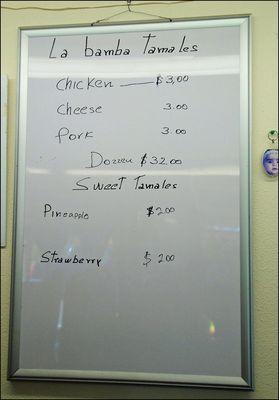 La bamba Tamales
Chicken — $3,00
Cheese 3.00
Pork 3.00
Dozzen $32.00
Sweet Tamales
Pineapple $200
Strawberry $200